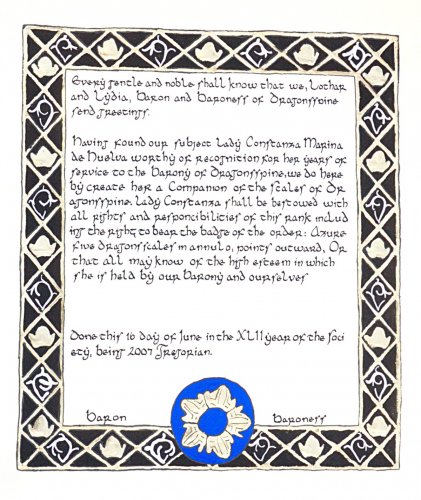 Every gentle and noble shall know that we, Lothar
and Lydia, Baron and Baroness of Dragonsspine
send greetings.
Having found our subject Lady Constanza Marina
de Huelva worthy of recognition for her years of
service to the Barony of Dragonsspine, we do here
by create her a Companion of the Scales of Dr
agonsspine. Lady Constanza shall be bestowed with
all rights and responcibilities of this rank includ
ing the right to bear the badge of the order: Azure
five dragonsscales in annulo, points outward, Or
that all may know of the high esteem in which
she is held by our barony and ourselves
Done this 16 day of June in the XLII year of the Soci
ety, being 2007 Gregorian.
Baron Baroness